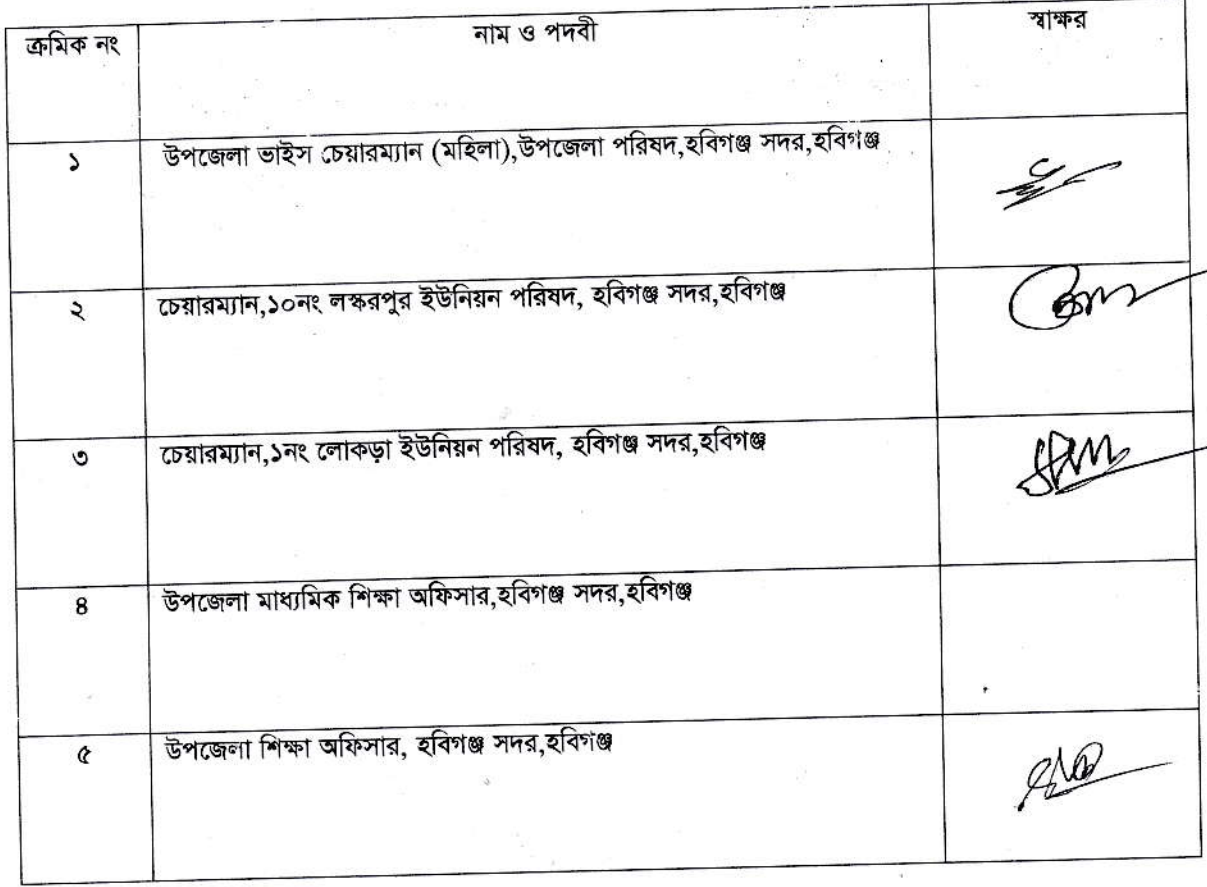 ক্রমিক নং নাম ও পদবী স্বাক্ষর
১ উপজেলা ভাইস চেয়ারম্যান (মহিলা),উপজেলা পরিষদ,হবিগঞ্জ সদর,হবিগঞ্জ
২ চেয়ারম্যান,১০নং লস্করপুর ইউনিয়ন পরিষদ, হবিগঞ্জ সদর,হবিগঞ্জ
৩ চেয়ারম্যান,১নং লোকড়া ইউনিয়ন পরিষদ, হবিগঞ্জ সদর,হবিগঞ্জ
৪ উপজেলা মাধ্যমিক শিক্ষা অফিসার,হবিগঞ্জ সদর,হবিগঞ্জ
৫ উপজেলা শিক্ষা অফিসার, হবিগঞ্জ সদর,হবিগঞ্জ